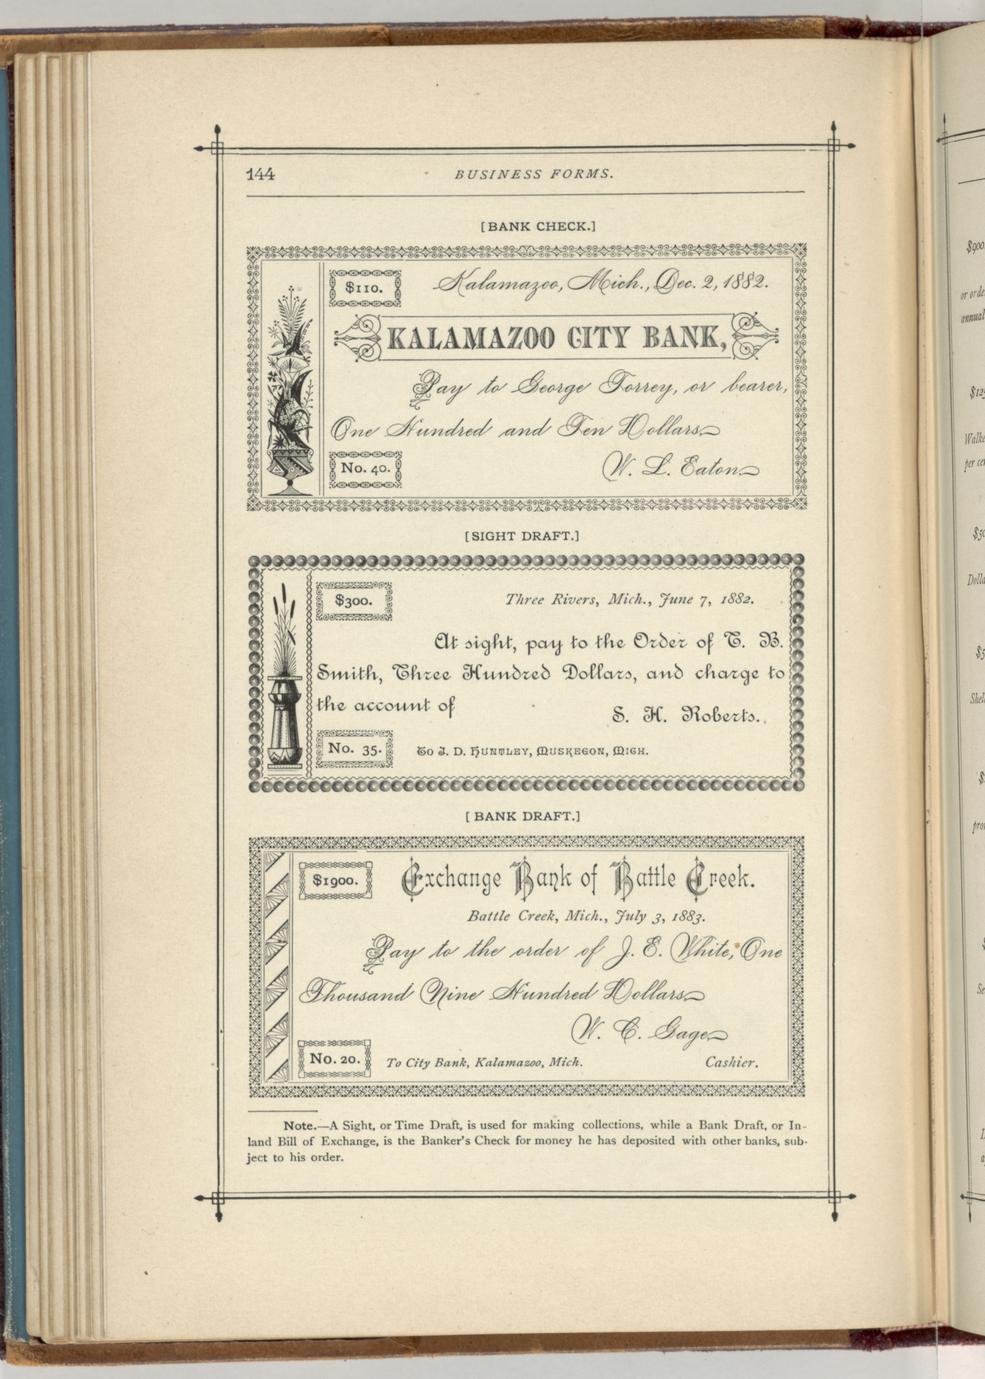 144
BUSINESS FORMS.
[BANK CHECK.]
$110.
Kalamazoo, Mich., Dec. 2, 1882.
KALAMAZOO CITY BANK,
Pay to George Torrey, or bearer,
One Hundred and Ten Dollars
No. 40.
W. L. Eaton
[SIGHT DRAFT.]
$300.
Three Rivers, Mich., June 7, 1882.
At sight, pay to the Order of T. B.
Smith, Three Hundred Dollars, and charge to
the account of
S. H. Roberts.
No. 35.
To J. D. HUNTLEY, MUSKEGON, MICH.
[BANK DRAFT.]
$1900.
Exchange Bank of Battle Creek.
Battle Creek, Mich., July 3, 1883.
Pay to the order of J. E. White, One
Thousand Nine Hundred Dollars
W. C. Gage
No. 20.
To City Bank, Kalamazoo, Mich.
Cashier.
Note.—A Sight, or Time Draft, is used for making collections, while a Bank Draft, or In-
land Bill of Exchange, is the Banker's Check for money he has deposited with other banks, sub-
ject to his order.
$900
or orde
annual